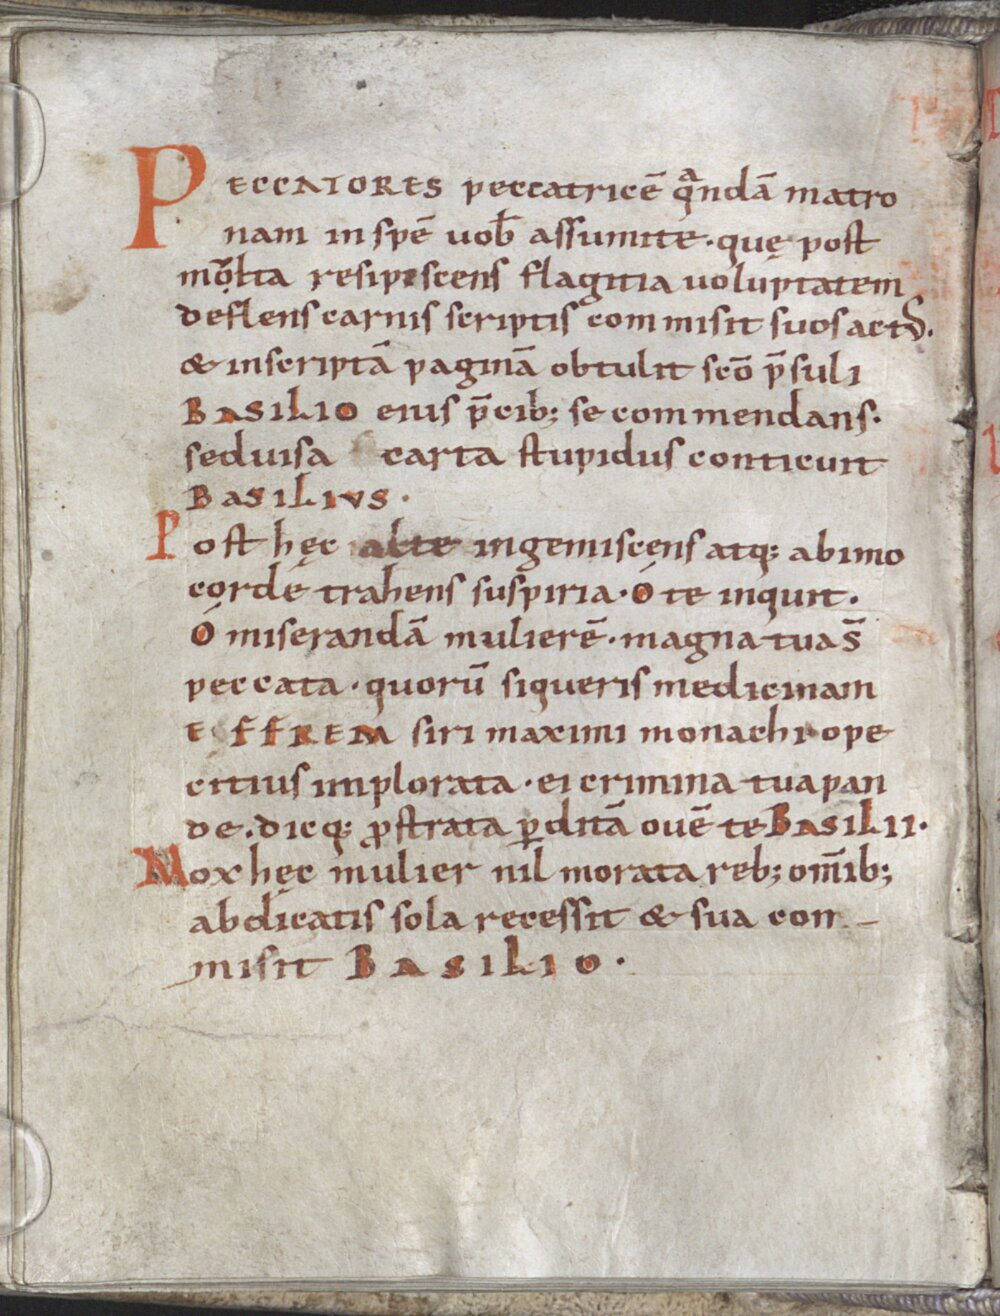 PECCATORES peccatricē qͣndā matro
nam in spē uob̄ assumite· quę post
mōlta resipiscens flagitia uoluptatem
deflens carnis scriptis commisit suos act᷒·
& inscriptā paginā obtulit sc̄o p̄suli
BASILIO eius p̄cib; se commendans·
sed uisa carta stupidus conticuit
BASILIVS·
Post hęc alte ingemiscens atq; ab imo
corde trahens suspiria· Ó te inquit·
Ó miserandā mulierē· magna tua s̄
peccata· quorū si queris medicinam
EFFREM siri maximi monachi ope
citius implorata· ei crimina tua pan
de· dicq; ꝓstrata ꝑditā ouē te BASILII·
Mox hęc mulier nil morata reb; om̄ib;
abdicatis sola recessit & sua con
misit BASILIO·